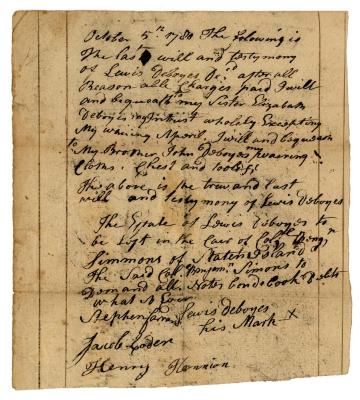 October 5th 1780 The following is
The last will and testymony
of Lewis Deboyes after all
Reason alle Charges paid I will
and bequeath my Sister Elizabeth
Deboyes wholely Excepting
My whering Aparil. I will and bequeath
to My Brother John Deboyes my waring
Cloths, Chest and tools
The above is the trew and last
will and testymony of Lewis Deboyes
The Estate of Lewis Deboyes to
be Left in the Caer of Coll Benjn
Simmons of Staten Island
The Said Coll Benjamin Simons to
Demand all Notes bonds Book Debts
or what Ever
Stephen Lewis Deboyes
his Mark X
Jacob
Henry